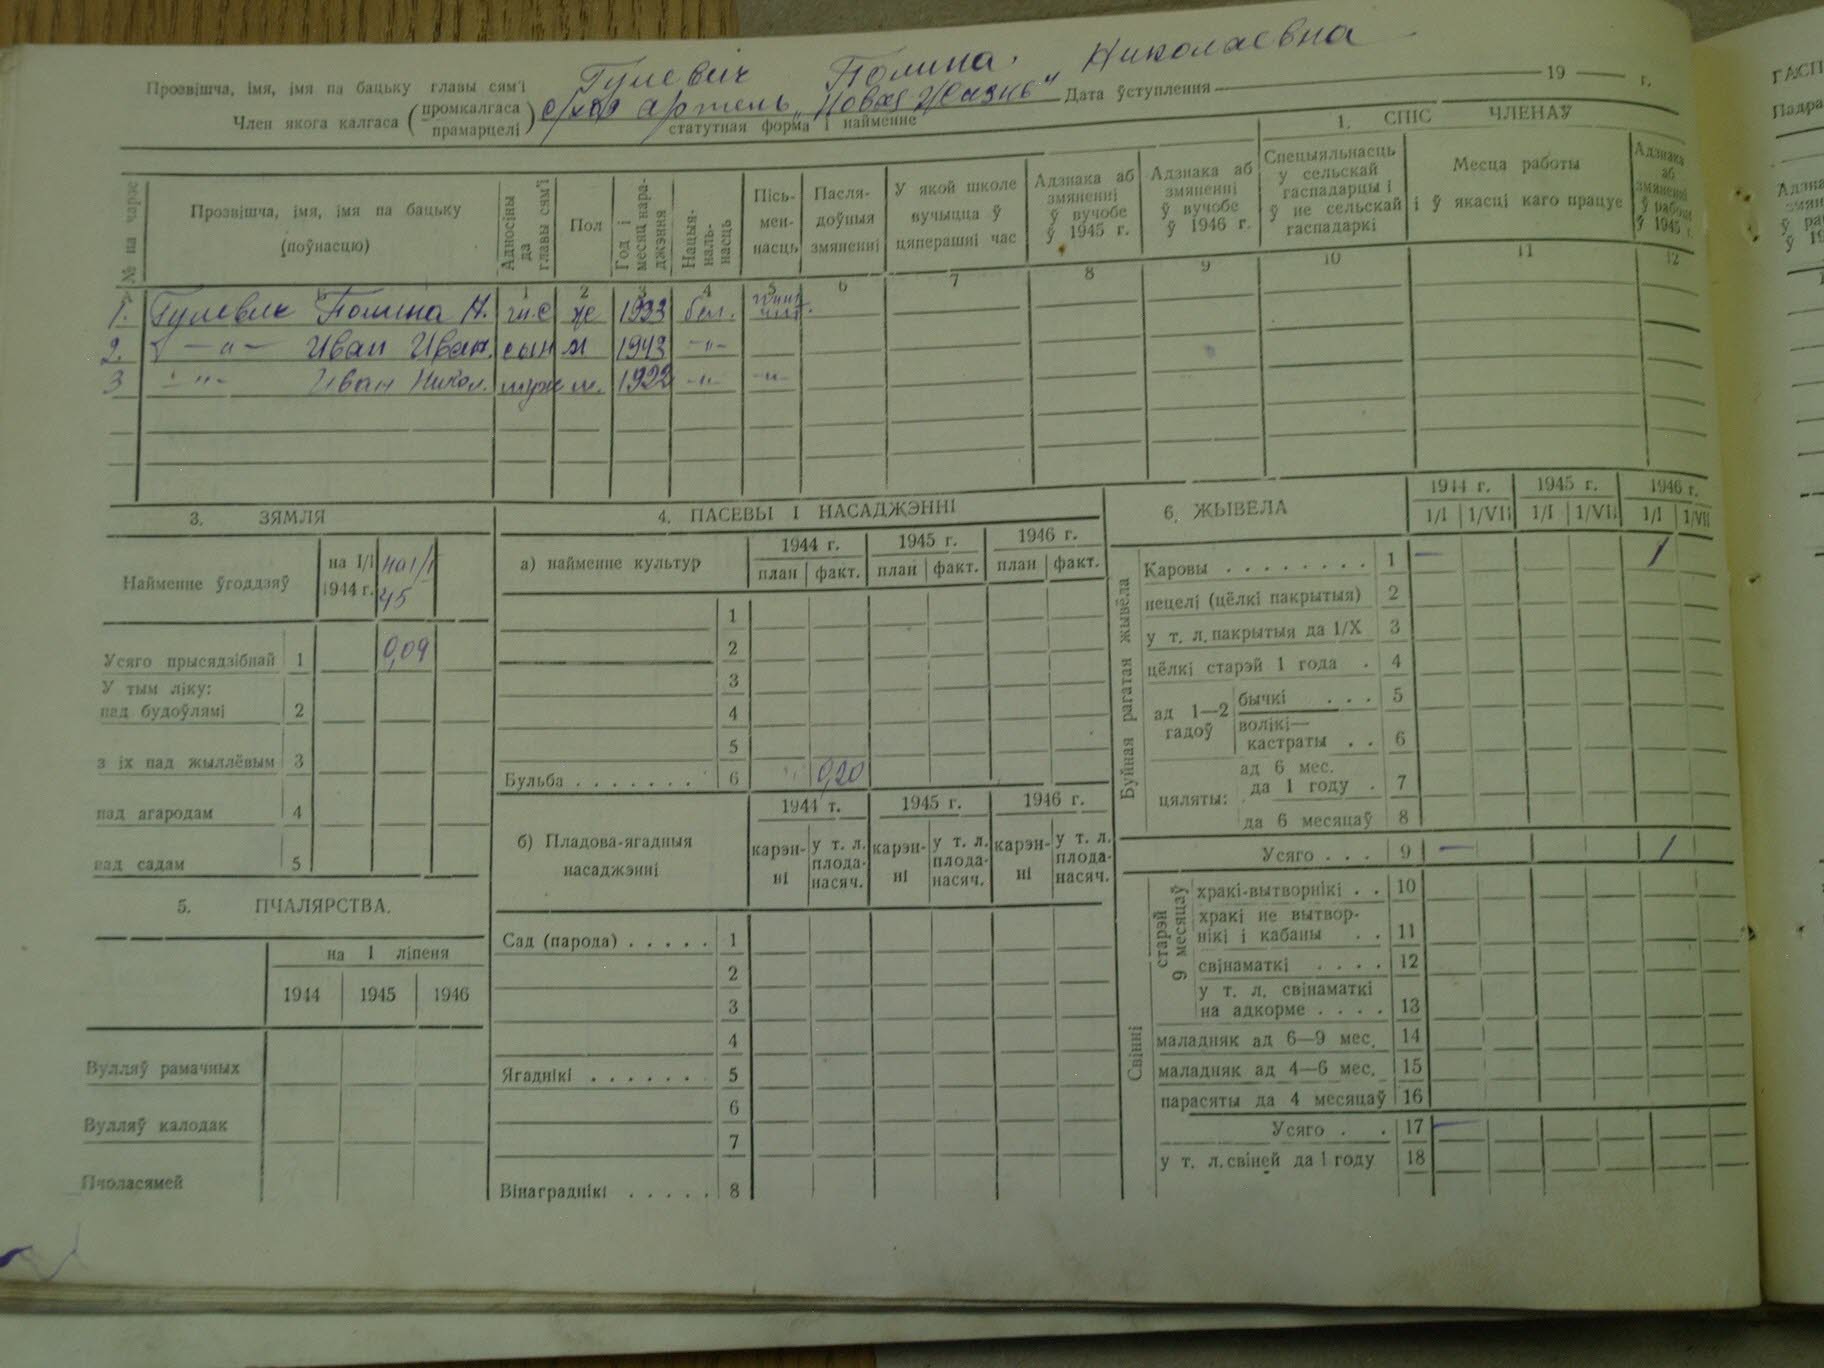 Прозвішча, імя, імя па бацьку главы сям'і Гулевич Полина Николаевна
Член якога калгаса (промкалгаса прамарцелі) с/хоз артель „Новая Жизнь" Дата ўступлення 19 г.
статутная форма і найменне
1. СПІС ЧЛЕНАЎ
№ на чарзе
Прозвішча, імя, імя па бацьку (поўнасцю)
Адносіны да главы сям'і
Пол
Год і месяц нараджэння
Нацыянальнасць
Пісьменнасць
Пасля-доўныя змяненні
У якой школе вучыцца ў цяперашні час
Адзнака аб змяненні ў вучобе ў 1945 г.
Адзнака аб змяненні ў вучобе 1946 г.
Спецыяльнасць у сельскай гаспадарцы і ў не сельскай гаспадаркі
Месца работы і ў якасці каго працуе
Адзнака аб змяненні ў рабоце ў 1945 г.
1 2 3 4 5 6 7 8 9 10 11 12
1. Гулевич Полина Н. ж 1933 бел.
2. -"- Иван Иван. сын м 1943 -"-
3 -"- Иван Никол. муж м. 1922 -"- -"-
3. ЗЯМЛЯ
Найменне ўгоддзяў на 1/I 1944 г. на 1/I 45
Усяго прысядзібнай 1 0,09
У тым ліку:
пад будоўлямі 2
з іх пад жыллёвым 3
пад агародам 4
пад садам 5
5. ПЧАЛЯРСТВА.
на 1 ліпеня
1944 1945 1946
Вулляў рамачных
Вулляў калодак
Пчоласямей
4. ПАСЕВЫ І НАСАДЖЭННІ
а) найменне культур 1944 г. 1945 г. 1946 г.
план факт. план факт. план факт.
1
2
3
4
5
Бульба . . . . . . . 6 0,20
б) Пладова-ягадныя насаджэнні
1944 г. 1945 г. 1946 г.
карэн-ні у т. л. плода-насяч. карэн-ні у т. л. плода-насяч. карэн-ні у т. л. плода-насяч.
Сад (парода) . . . . . 1
2
3
4
Ягаднікі . . . . . . . 5
6
7
Вінаграднікі . . . . . 8
6. ЖЫВЕЛА
1944 г. 1945 г. 1946 г.
1/I 1/VII 1/I 1/VII 1/I 1/VII
Буйная рагатая жывёла
Каровы . . . . . . . . 1 — 1
нецелі (цёлкі пакрытыя) 2
у т. л. пакрытыя да 1/X 3
цёлкі старэй 1 года . 4
ад 1—2 гадоў
бычкі . . . 5
волікі—кастраты . . 6
цяляты:
ад 6 мес. да 1 году . 7
да 6 месяцаў 8
Усяго . . . 9 — 1
Свінні
старэй 9 месяцаў
хракі-вытворнікі . . 10
хракі не вытвор-нікі і кабаны . . 11
свінаматкі . . . . 12
у т. л. свінаматкі на адкорме . . . . 13
маладняк ад 6—9 мес. 14
маладняк ад 4—6 мес. 15
парасяты да 4 месяцаў 16
Усяго . . 17 —
у т. л. свіней да 1 году 18